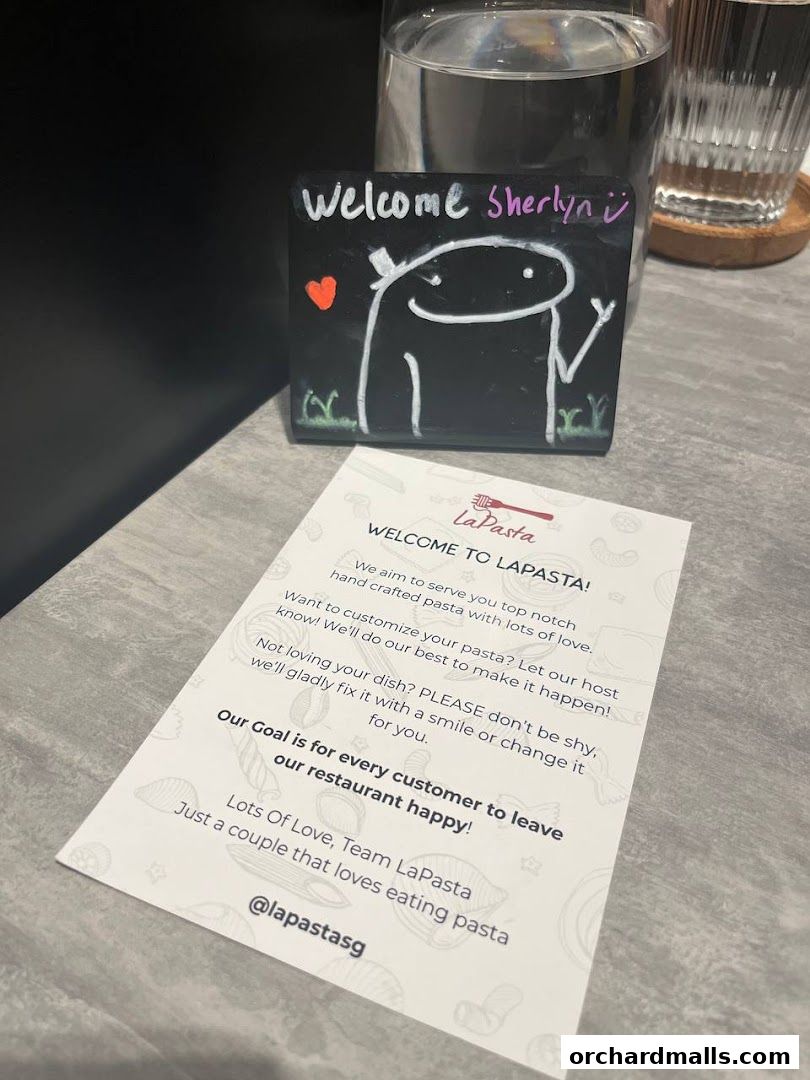 Welcome Sherlyn
LaPasta
WELCOME TO LAPASTA!
We aim to serve you top notch
hand crafted pasta with lots of love.
Want to customize your pasta? Let our host
know! We'll do our best to make it happen!
Not loving your dish? PLEASE don't be shy,
we'll gladly fix it with a smile or change it
for you.
Our Goal is for every customer to leave
our restaurant happy!
Lots Of Love, Team LaPasta
Just a couple that loves eating pasta
@lapastasg
orchardmalls.com